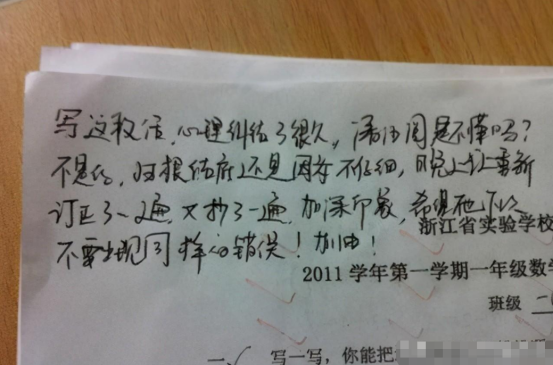 写这段话，心理纠结了很久，潘汤周是不懂吗？
不是的，归根结底还是因为不仔细，昨晚上让重新
订正了一遍，又抄了一遍，加深印象，希望他下次
不要出现同样的错误！加油！
浙江省实验学校
2011 学年第一学期一年级数学
班级 二
一、 写一写，你能把